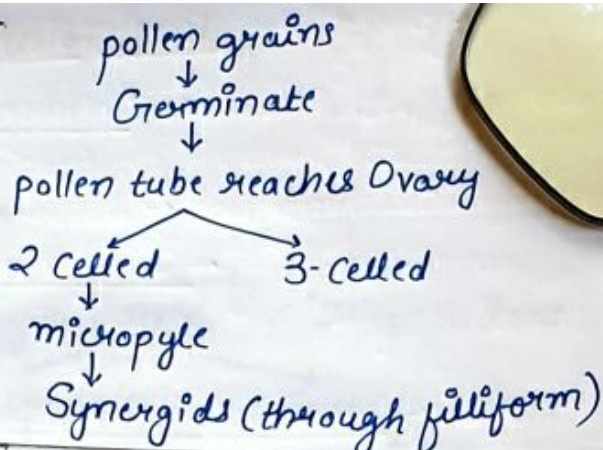 pollen grains
↓
Germinate
↓
pollen tube reaches Ovary
2 Celled 3-Celled
↓
micropyle
↓
Synergids (through filliform)